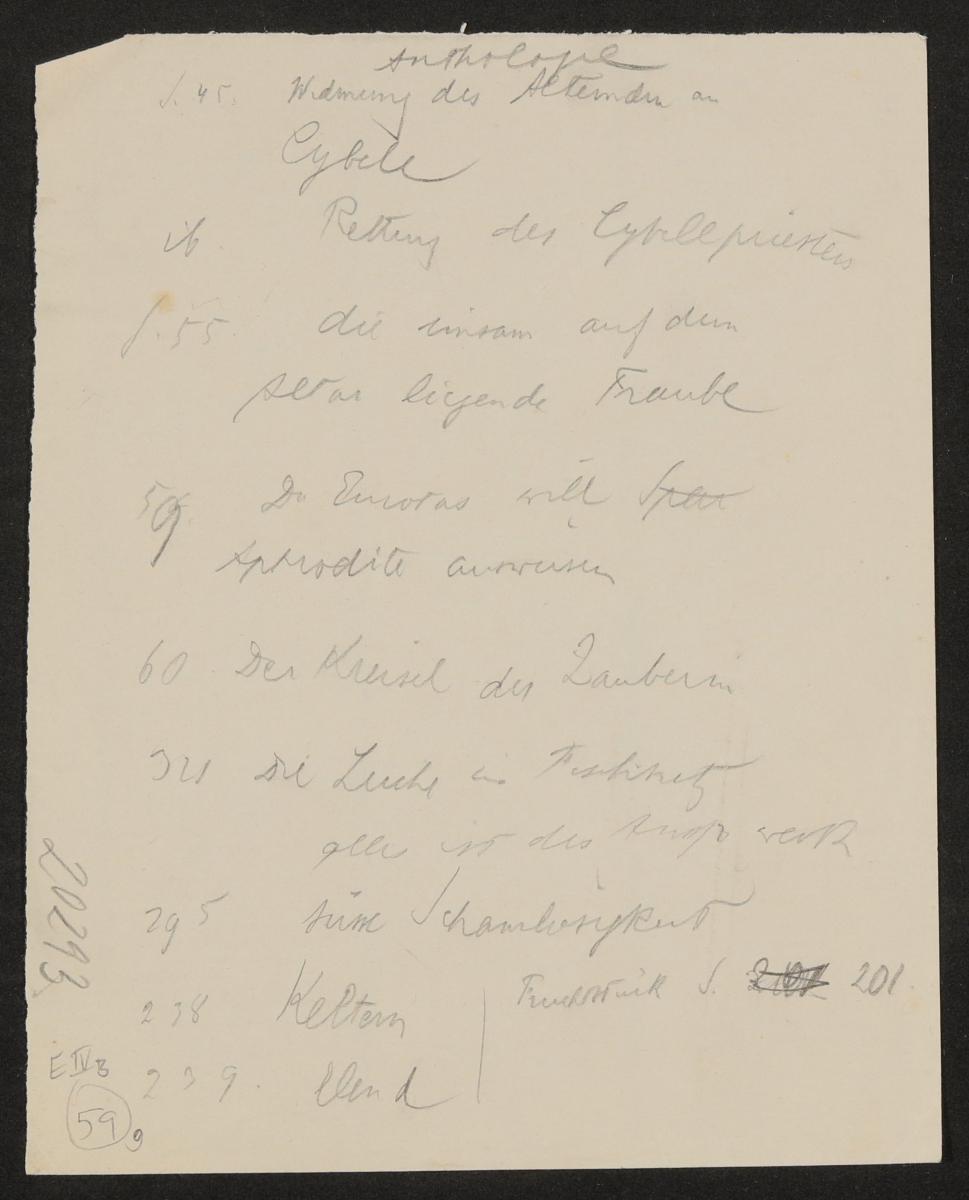 Anthologie
S. 45. Widmung des Alternden an
Cybele
ib. Rettung des Cybelepriesters
S. 55. die einsam auf dem
Altar liegende Traube
59. Du Eurotas will Spar
Aphrodite ausweisen
60 Der Kreisel der Zauberin
321 Die Leiche im Fischnetz
alles ist des werk
295 süsse Schamlosigkeit
238 Keltern
Fruchtstück S. 201.
239. Elend
20293
E IV B
59 9